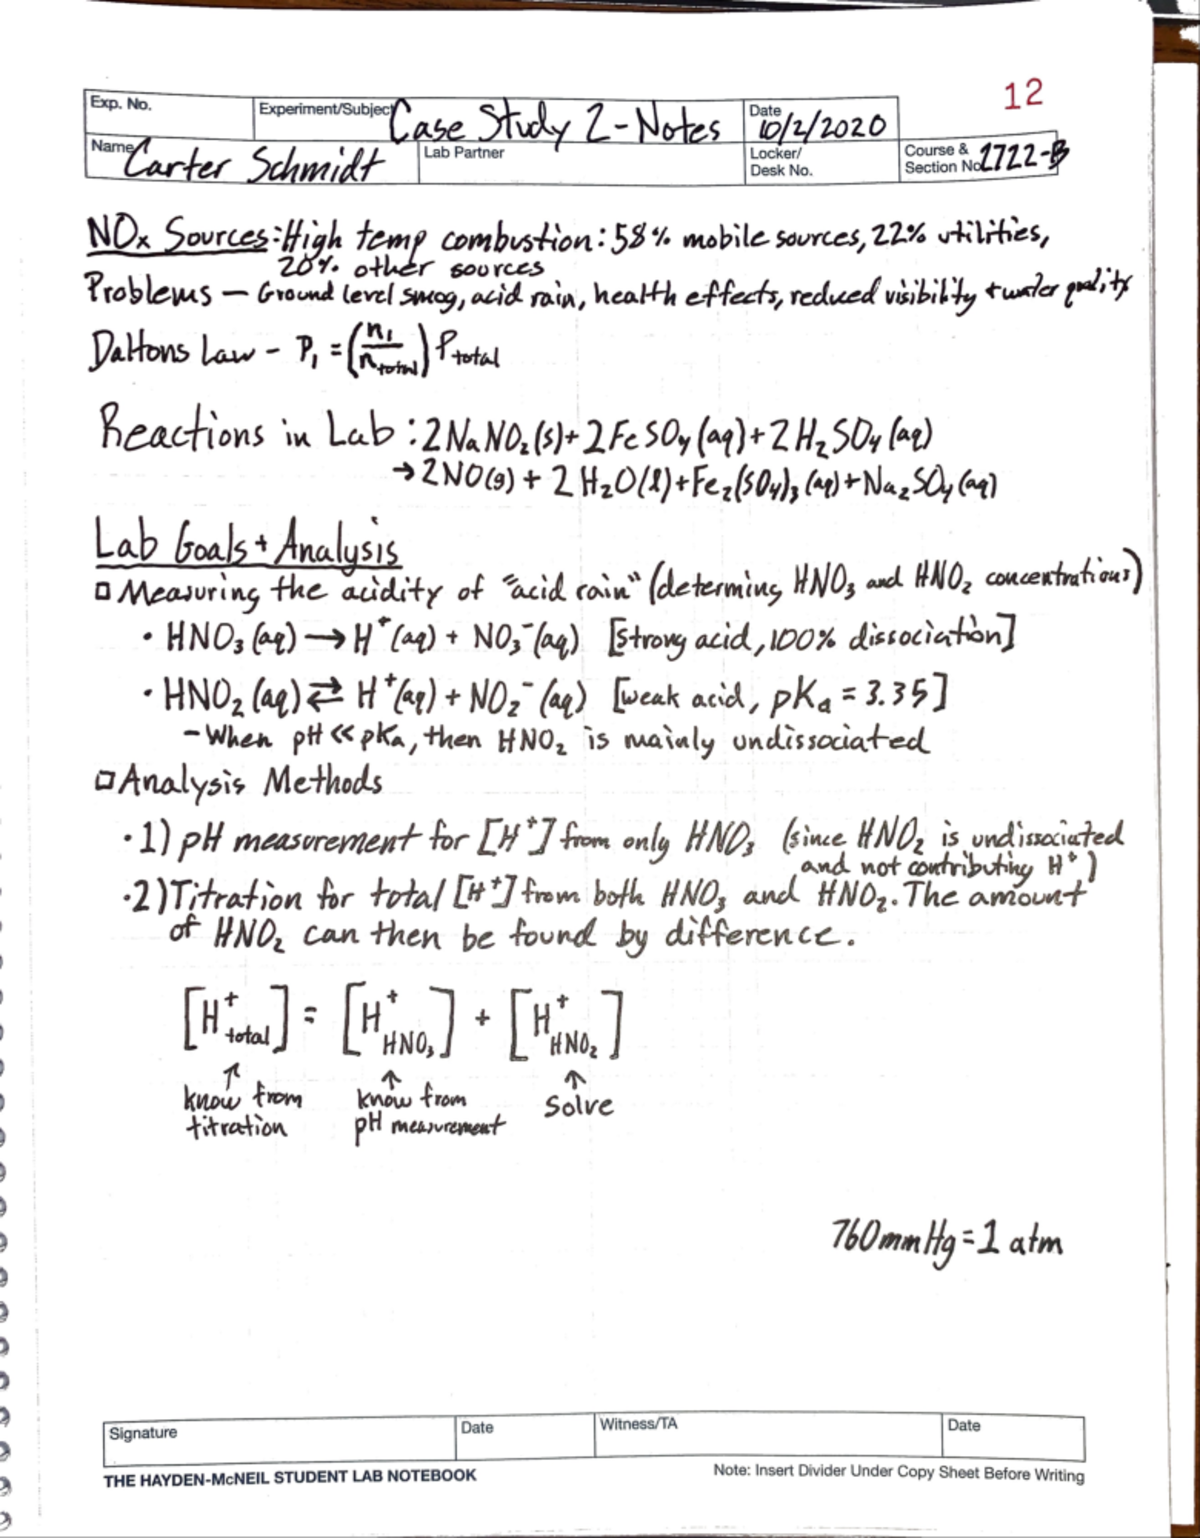 12
Exp. No.
Experiment/Subject Case Study 2-Notes
Date 10/2/2020
Name Carter Schmidt
Lab Partner
Locker/
Desk No.
Course &
Section No. 1722-B
NOx Sources: High temp combustion: 58% mobile sources, 22% utilities,
20% other sources
Problems — Ground level smog, acid rain, health effects, reduced visibility + water quality
Daltons Law - P₁ = (n₁/n total) P total
Reactions in Lab: 2NaNO₂(s) + 2FeSO₄(aq) + 2H₂SO₄(aq)
→ 2NO(g) + 2H₂O(l) + Fe₂(SO₄)₃(aq) + Na₂SO₄(aq)
Lab Goals + Analysis
□ Measuring the acidity of "acid rain" (determing HNO₃ and HNO₂ concentrations)
• HNO₃(aq) → H⁺(aq) + NO₃⁻(aq) [strong acid, 100% dissociation]
• HNO₂(aq) ⇄ H⁺(aq) + NO₂⁻(aq) [weak acid, pKa = 3.35]
- When pH << pKa, then HNO₂ is mainly undissociated
□ Analysis Methods
• 1) pH measurement for [H⁺] from only HNO₃ (since HNO₂ is undissociated
and not contributing H⁺)
• 2) Titration for total [H⁺] from both HNO₃ and HNO₂. The amount
of HNO₂ can then be found by difference.
[H⁺ total] = [H⁺ HNO₃] + [H⁺ HNO₂]
↑ ↑ ↑
know from know from Solve
titration pH measurement
760mmHg = 1 atm
Signature
Date
Witness/TA
Date
THE HAYDEN-McNEIL STUDENT LAB NOTEBOOK
Note: Insert Divider Under Copy Sheet Before Writing